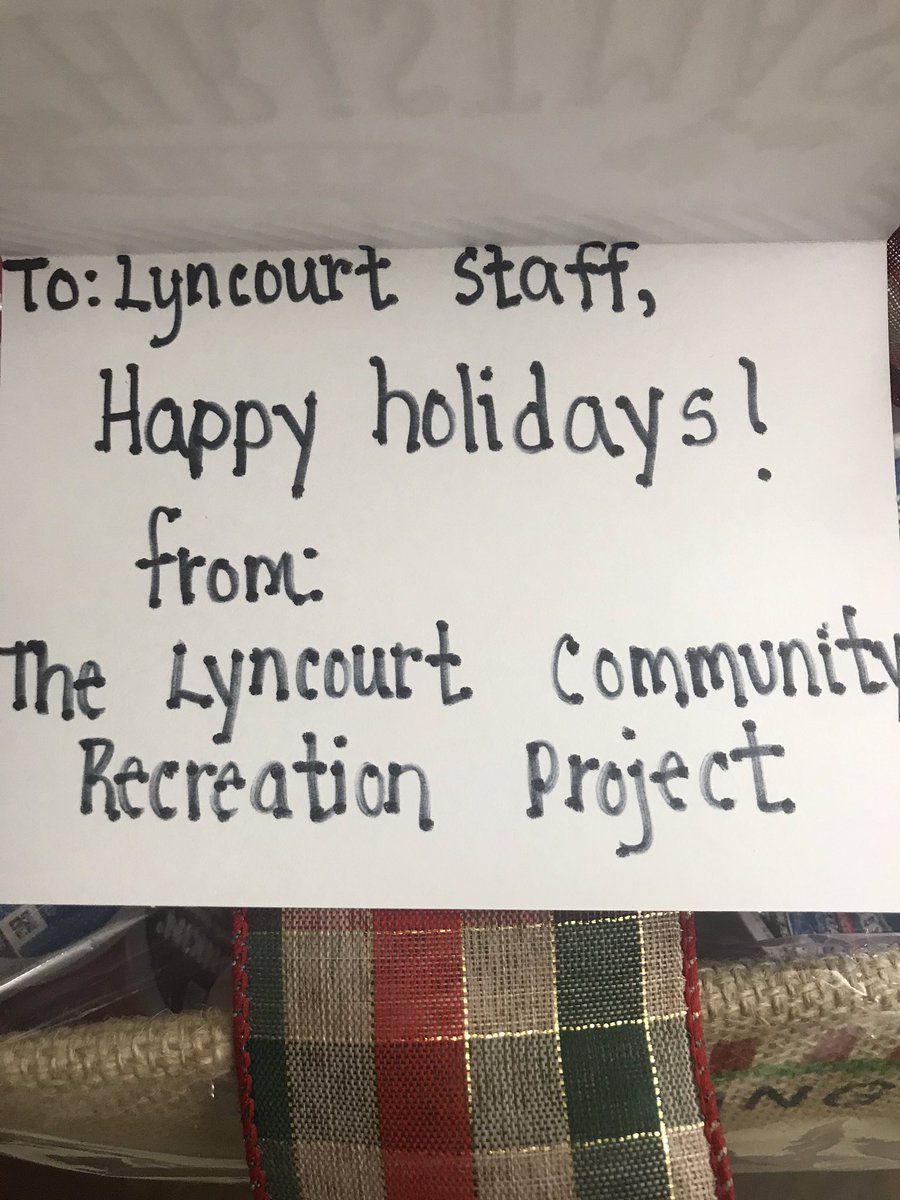 To: Lyncourt Staff,
Happy holidays!
from:
The Lyncourt Community
Recreation Project
NG